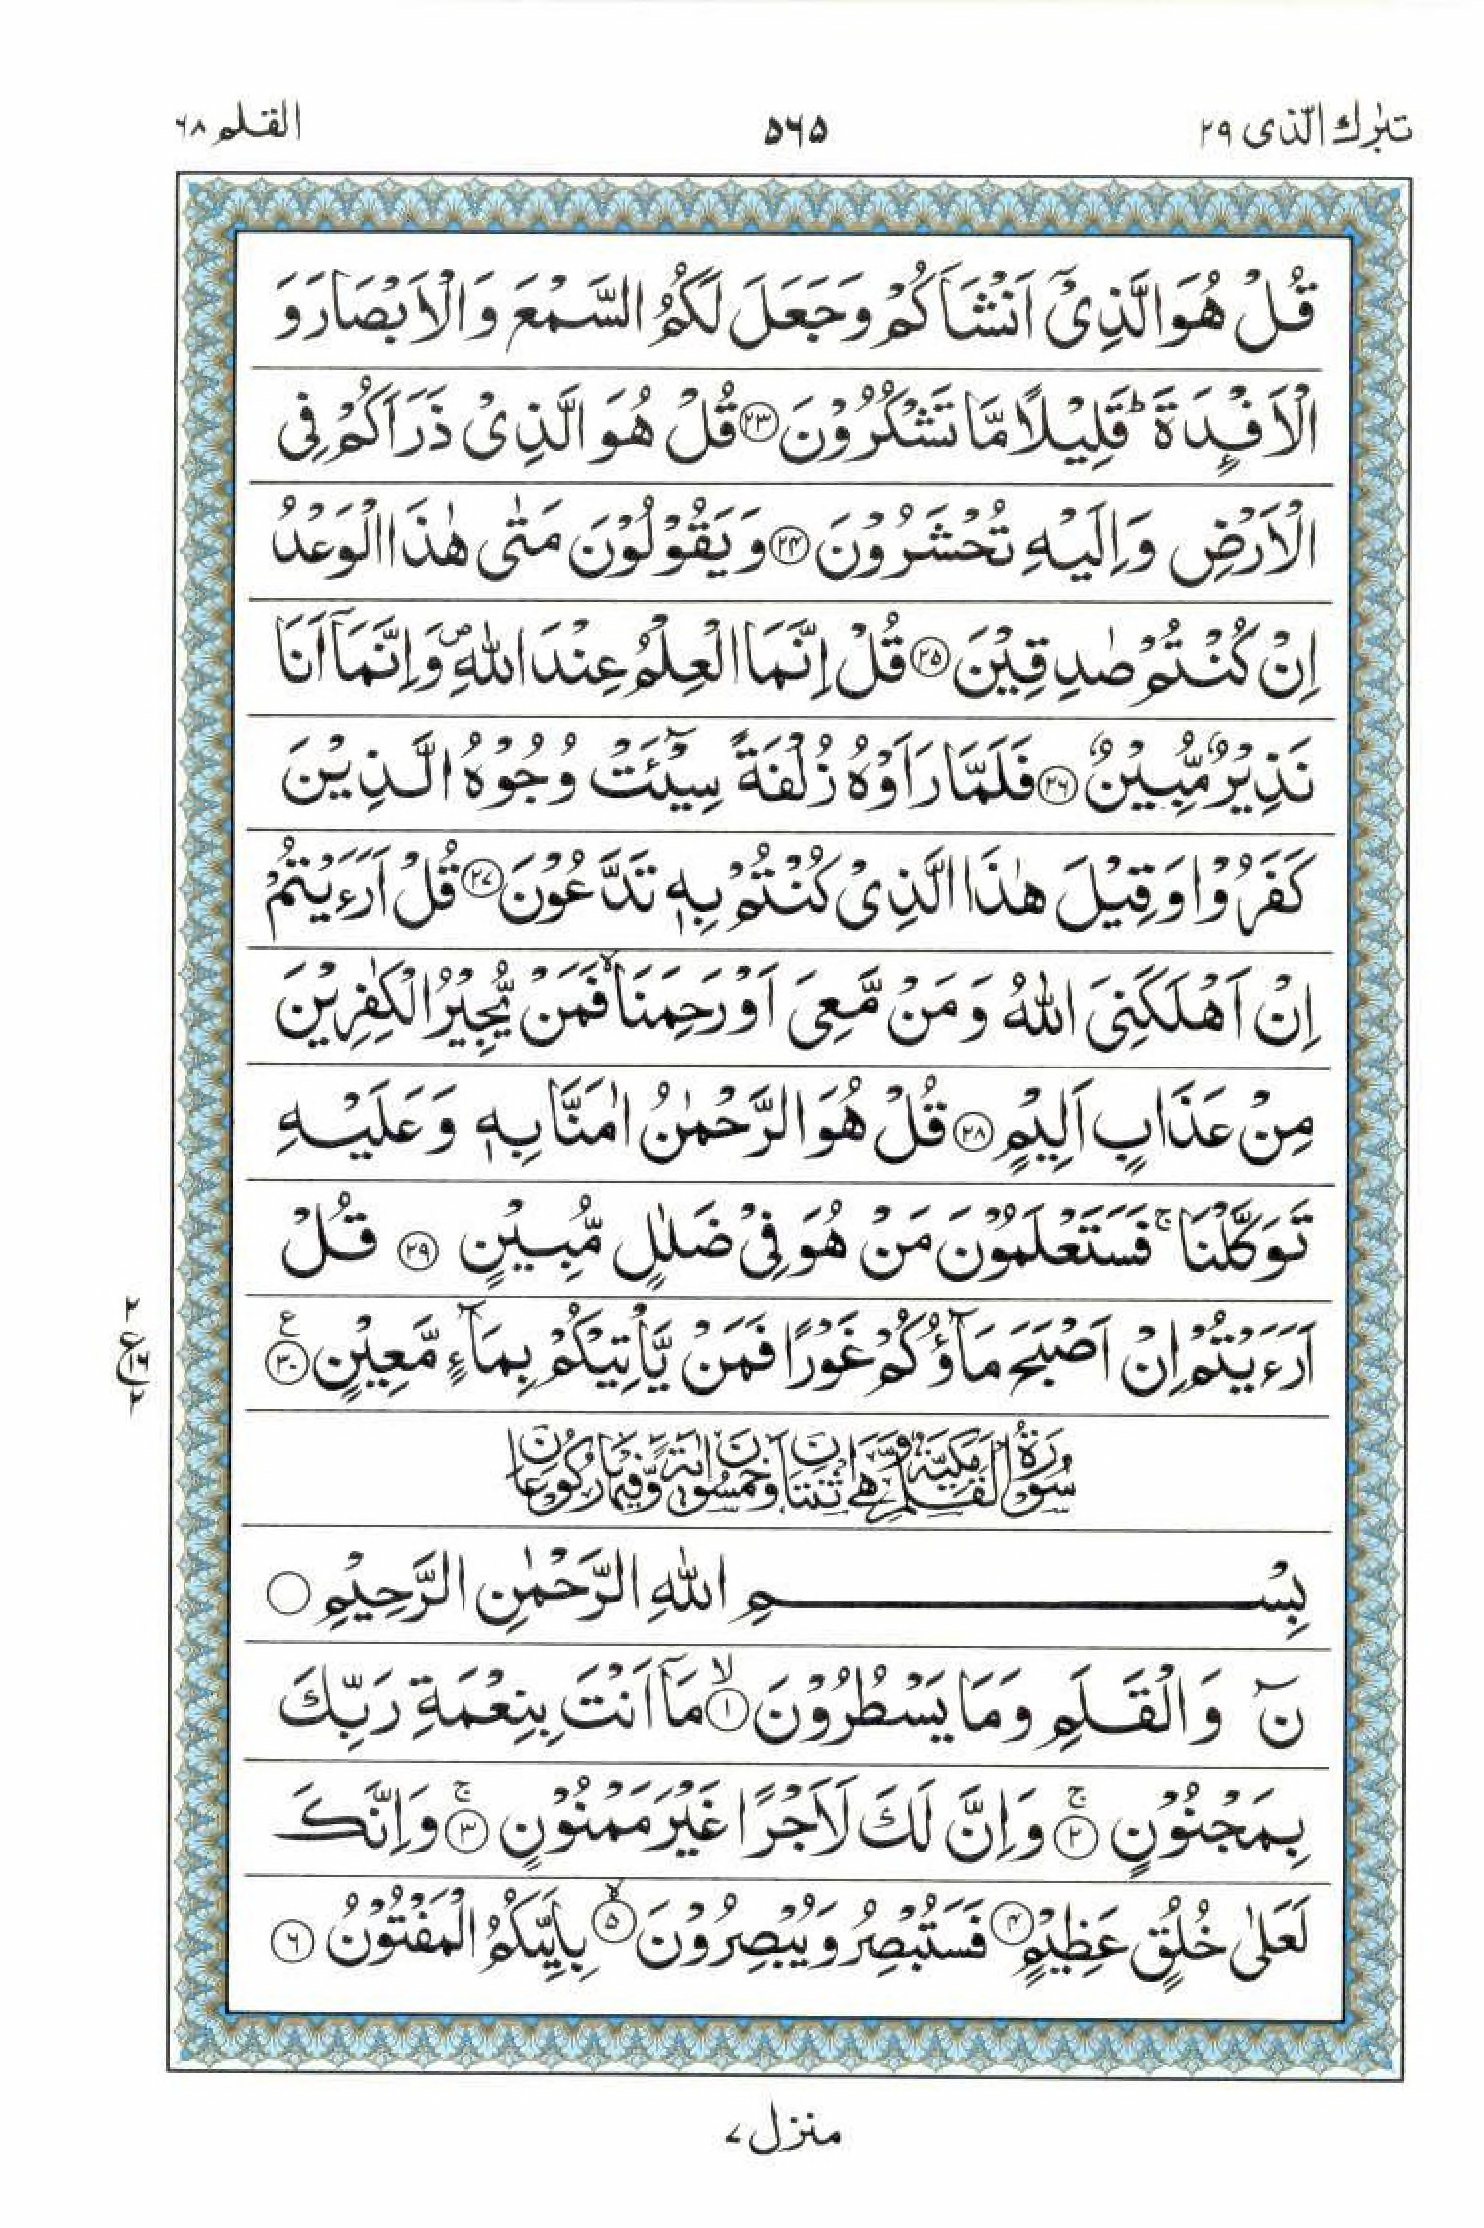 تبٰرك الّذى ٢٩
۵۶۵
القلم ٦٨
قُلْ هُوَ الَّذِىْۤ اَنْشَاَكُمْ وَجَعَلَ لَكُمُ السَّمْعَ وَالْاَبْصَارَ وَ
الْاَفْـِٕدَةَ ؕ قَلِيْلًا مَّا تَشْكُرُوْنَ ﴿۲۳﴾ قُلْ هُوَ الَّذِىْ ذَرَاَكُمْ فِى
الْاَرْضِ وَاِلَيْهِ تُحْشَرُوْنَ ﴿۲۴﴾ وَيَقُوْلُوْنَ مَتٰى هٰذَا الْوَعْدُ
اِنْ كُنْتُمْ صٰدِقِيْنَ ﴿۲۵﴾ قُلْ اِنَّمَا الْعِلْمُ عِنْدَ اللّٰهِ ۪ وَاِنَّمَاۤ اَنَا
نَذِيْرٌ مُّبِيْنٌ ﴿۲۶﴾ فَلَمَّا رَاَوْهُ زُلْفَةً سِيْٓـَٔتْ وُجُوْهُ الَّذِيْنَ
كَفَرُوْا وَقِيْلَ هٰذَا الَّذِىْ كُنْتُمْ بِهٖ تَدَّعُوْنَ ﴿۲۷﴾ قُلْ اَرَءَيْتُمْ
اِنْ اَهْلَكَنِىَ اللّٰهُ وَمَنْ مَّعِىَ اَوْ رَحِمَنَا ۙ فَمَنْ يُّجِيْرُ الْكٰفِرِيْنَ
مِنْ عَذَابٍ اَلِيْمٍ ﴿۲۸﴾ قُلْ هُوَ الرَّحْمٰنُ اٰمَنَّا بِهٖ وَعَلَيْهِ
تَوَكَّلْنَا ۚ فَسَتَعْلَمُوْنَ مَنْ هُوَ فِىْ ضَلٰلٍ مُّبِيْنٍ ﴿۲۹﴾ قُلْ
اَرَءَيْتُمْ اِنْ اَصْبَحَ مَآؤُكُمْ غَوْرًا فَمَنْ يَّاْتِيْكُمْ بِمَآءٍ مَّعِيْنٍ ﴿۳۰﴾ ع
۲ ع ۱۶ ۲
سُوْرَةُ الْقَلَمِ مَكِّيَّةٌ وَّهِىَ اثْنَتَانِ وَخَمْسُوْنَ اٰيَةً وَّفِيْهَا رُكُوْعَانِ
بِسْمِ اللّٰهِ الرَّحْمٰنِ الرَّحِيْمِ
نٓ وَالْقَلَمِ وَمَا يَسْطُرُوْنَ ۙ﴿۱﴾ مَاۤ اَنْتَ بِنِعْمَةِ رَبِّكَ
بِمَجْنُوْنٍ ۚ﴿۲﴾ وَاِنَّ لَكَ لَاَجْرًا غَيْرَ مَمْنُوْنٍ ۚ﴿۳﴾ وَاِنَّكَ
لَعَلٰى خُلُقٍ عَظِيْمٍ ﴿۴﴾ فَسَتُبْصِرُ وَيُبْصِرُوْنَ ۙ﴿۵﴾ بِاَيِّىكُمُ الْمَفْتُوْنُ ﴿۶﴾
منزل ۷